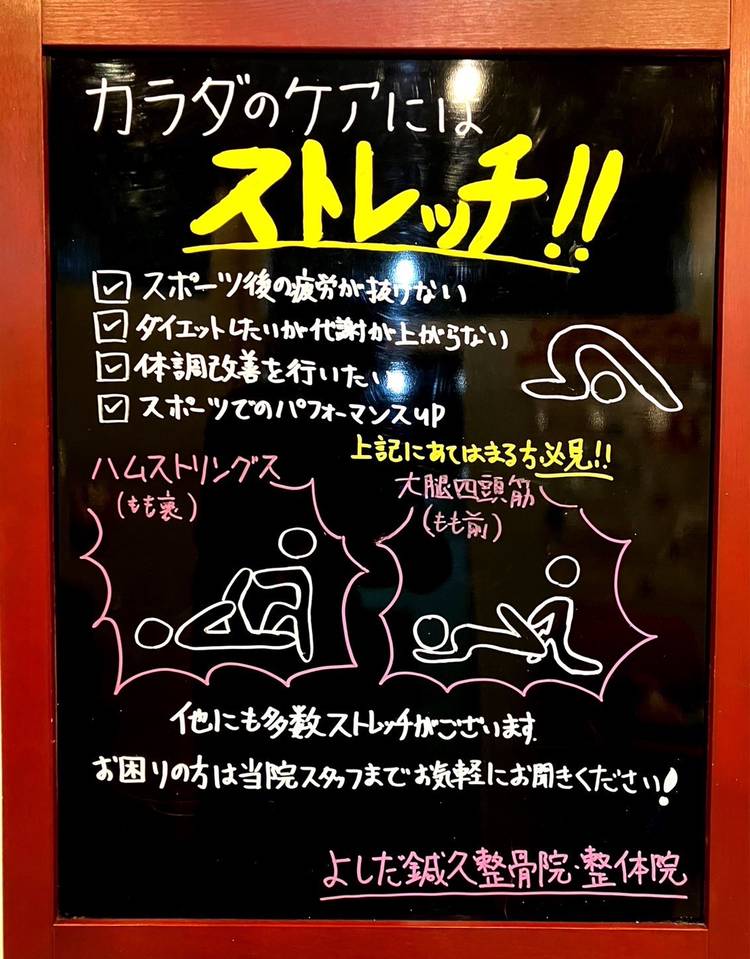 カラダのケアには
ストレッチ!!
スポーツ後の疲労が抜けない
ダイエットしたいが代謝が上がらない
体調改善を行いたい
スポーツでのパフォーマンスup
上記にあてはまる方必見!!
ハムストリングス
(もも裏)
大腿四頭筋
(もも前)
他にも多数ストレッチがございます.
お困りの方は当院スタッフまでお気軽にお聞きください!
よしだ鍼久整骨院・整体院